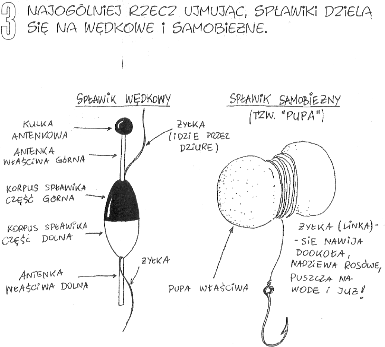 3 NAJOGÓLNIEJ RZECZ UJMUJĄC, SPŁAWIKI DZIELĄ
SIĘ NA WĘDKOWE I SAMOBIEŻNE.
SPŁAWIK WĘDKOWY
KULKA
ANTENKOWA
ANTENKA
WŁAŚCIWA GÓRNA
KORPUS SPŁAWIKA
CZĘŚĆ GÓRNA
KORPUS SPŁAWIKA
CZĘŚĆ DOLNA
ANTENKA
WŁAŚCIWA DOLNA
ŻYŁKA
(IDZIE PRZEZ
DZIURĘ)
ŻYŁKA
SPŁAWIK SAMOBIEŻNY
(TZW. "PUPA")
PUPA WŁAŚCIWA
ŻYŁKA (LINKA)-
- SIĘ NAWIJA
DOOKOŁA,
NADZIEWA ROSÓWĘ,
PUSZCZA NA
WODĘ I JUŻ!